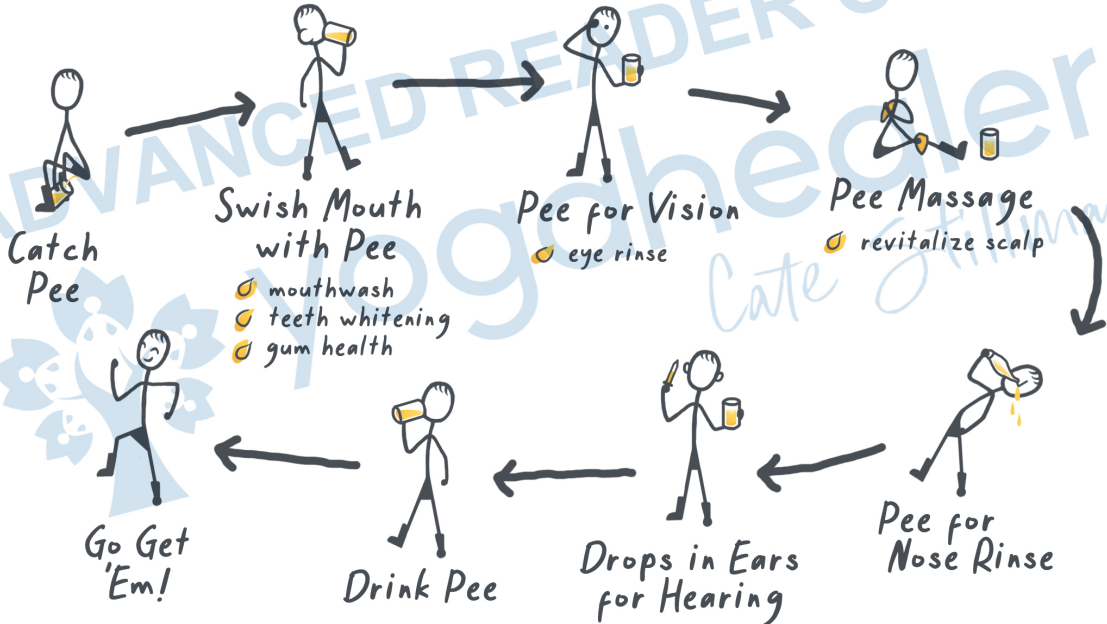 ADVANCED READER C
yogahealer
Cate Stillma
Catch
Pee
Swish Mouth
with Pee
mouthwash
teeth whitening
gum health
Pee for Vision
eye rinse
Pee Massage
revitalize scalp
Pee for
Nose Rinse
Drops in Ears
for Hearing
Drink Pee
Go Get
'Em!